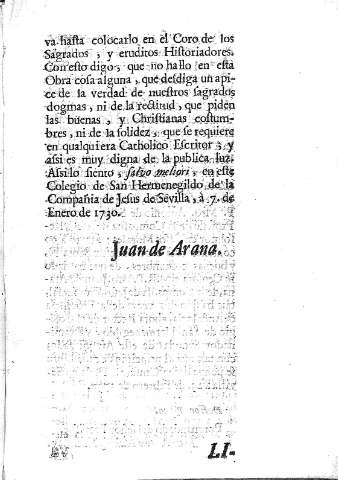 va hasta colocarlo en el Coro de los
Sagrados , y eruditos Historiadores.
Con esto digo , que no hallo en esta
Obra cosa alguna , que desdiga un api-
ce de la verdad de nuestros sagrados
dogmas , ni de la rectitud , que piden
las buenas , y Christianas costum-
bres , ni de la solidez , que se requiere
en qualquiera Catholico Escritor ; y
assi es muy digna de la publica luz.
Assi lo siento , salvo meliori , en este
Colegio de San Hermenegildo de la
Compañia de Jesus de Sevilla, à 7. de
Enero de 1730.
Juan de Arana.
LI-